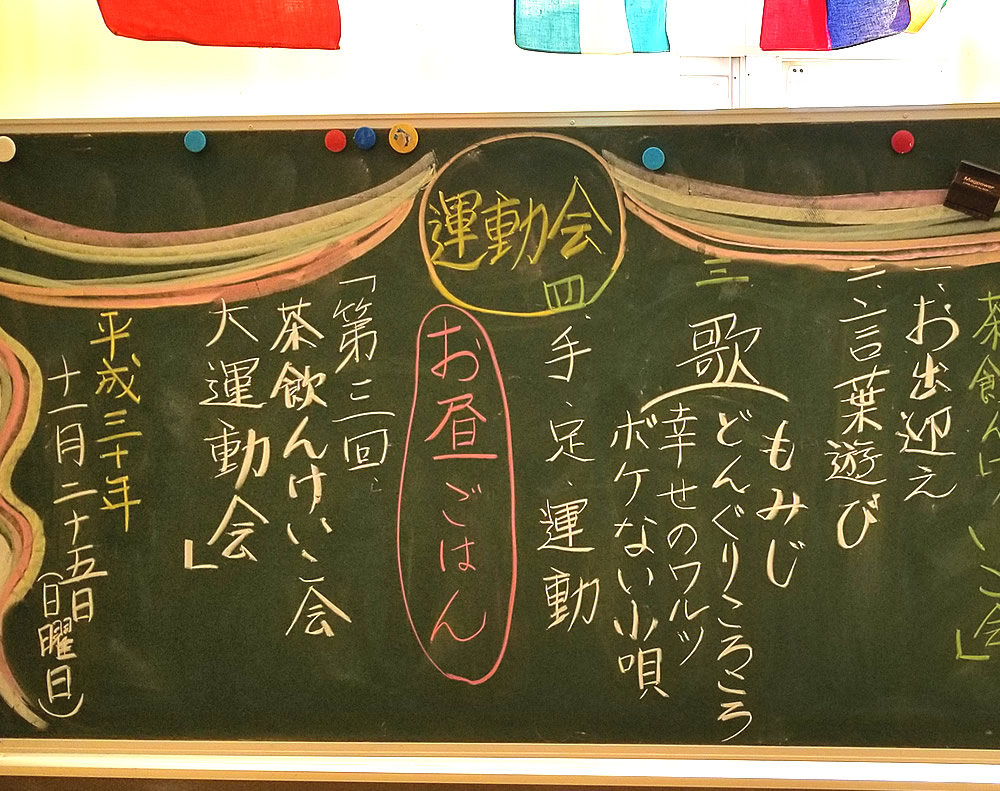 運動会
茶飲んけいこ会」
一、お出迎え
二、言葉遊び
三、
歌
もみじ
どんぐりころころ
幸せのワルツ
ボケない小唄
四、手足運動
お昼ごはん
「第三回
茶飲んけいこ会
大運動会」
平成三十年
十一月二十五日
(日曜日)